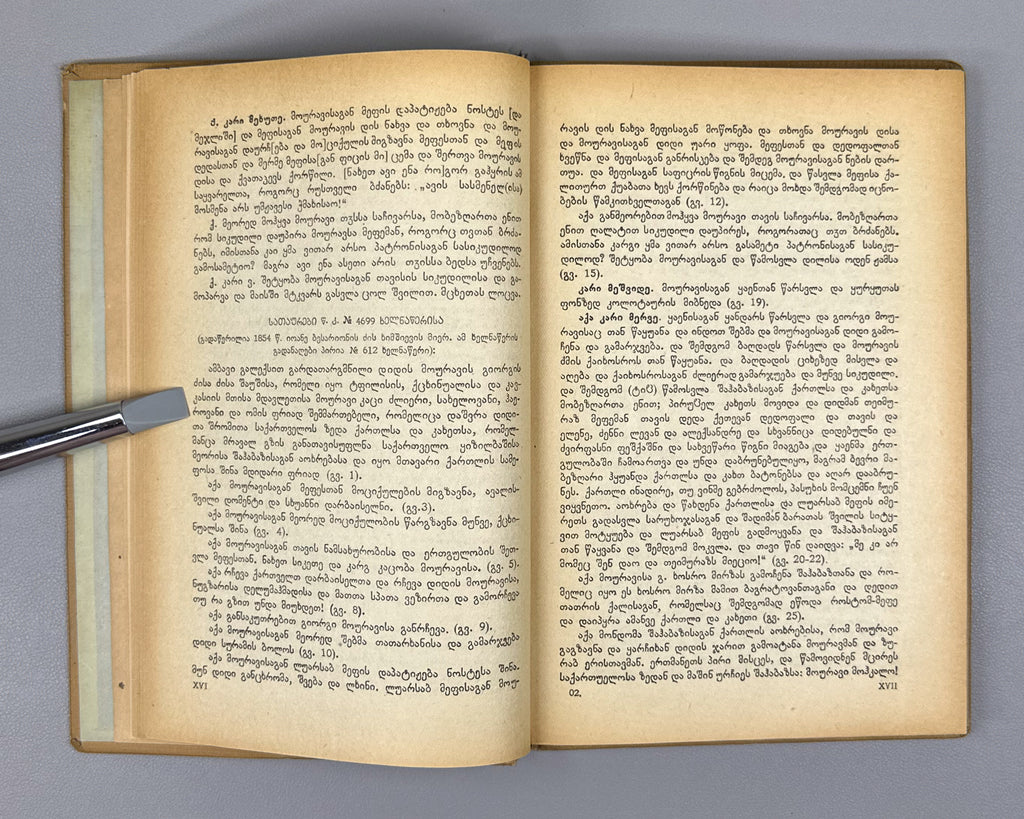 ქ. კარი მეხუთე. მოურავისაგან მეფის დაპატიჟება ნოსტეს [და
მეჯლიში] და მეფისაგან მოურავის დის ნახვა და თხოვნა და მოუ-
რავისაგან დაურჩ[ება და მო]ციქულის მიგზავნა მეფესთან და მეფის
დედასთან და მერმე მეფისა[გან ფიცის მი] ცემა და შერთვა მოურავის
დისა და ქვათაკევს ქორწილი. [ნახეთ ავი ენა რო]გორ გაჰყრის ამ
საყვარელთა, როგორც რუსთველი ბძანებს: „ავის სასმენელ(ისა)
მოსმენა არს უმჟავესი ჭმახისაო!“
ქ. მეორედ მოჰყვა მოურავი თჳსსა საჩივარსა, მობეზღართა ენით
რომ სიკუდილი დაუპირა მოურავსა მეფემან, როგორც თვთან ბრძა-
ნებს, იმისთანა კაი ყმა ვითარ არსო პატრონისაგან სასიკუდილოდ
გამოსამეტიო? მაგრა ავი ენა ასეთი არის თჳისსა ბედსა უჩვენებს.
ქ. კარი ვ. შეტყობა მოურავისაგან თავისის სიკუდილისა და გა-
მოპარვა და მაისში მტკვარს გასვლა ცოლ შვილით. მცხეთას ლოცვა.
სათაურები წ. კ. № 4699 ხელნაწერისა
(გადაწერილია 1854 წ. იოანე ბესარიონის ძის ხიმშიევის მიერ. ამ ხელნაწერის
გადანაღები პირია № 612 ხელნაწერი):
ამბავი გალექსით გარდათარგმნილი დიდის მოურავის გიორგის
ძისა ძისა შაუშისა, რომელი იყო ტფილისის, ქცხინუალისა და კავ-
კასიის მთისა მდავლეთისა მოურავი კაცი ძლიერი, სახელოვანი, ჰაე-
როვანი და ომის ფრიად შემმართებელი, რომელიცა დაშვრა დიდი-
თა შრომითა საქართველოს ზედა ქართლსა და კახეთსა, რომელ-
მანცა მრავალ გზის განათავისუფლნა საქართველო ყიზილბაშისა
მეორისა შაჰაბაზისაგან აოხრებასა და იყო მთავარი ქართლის სამე-
ფოსა შინა მდიდარი ფრიად (გვ. 1).
აქა მოურავისაგან მეფესთან მოციქულების მიგზავნა, ავალის-
შვილი დომენტი და სხუანნი დარბაისელნი. (გვ.3).
აქა მოურავისაგან მეორედ მოციქულობის წარგზავნა მუნვე, ქცხი-
ნუალსა შინა (გვ. 4).
აქა მოურავისაგან თავის ნამსახურობისა და ერთგულობის შეთ-
ვლა მეფესთან. ნახეთ სიკეთე და კარგ კაცობა მოურავისა. (გვ. 5).
აქა რჩევა ქართველთ დარბაისელთა და რჩევა დიდის მოურავისა,
ნუგზარისა დელუმაჰმადისა და მათთა სპათა ვეზირთა და გამორჩევა
თუ რა გზით უნდა მიუხდეთ! (გვ. 8).
აქა განსაკუთრებით გიორგი მოურავისა განრჩევა. (გვ. 9).
აქა მოურავისაგან მეორედ შებმა თათარხანისა და გამარჯვება
დიდი სურამის ბოლოს (გვ. 10).
აქა მოურავისაგან ლუარსაბ მეფის დაპატიჟება ნოსტესა შინა.
მუნ დიდი განცხრომა, შვება და ლხინი. ლუარსაბ მეფისაგან მოუ-
XVI
რავის დის ნახვა მეფისაგან მოწონება და თხოვნა მოურავის დისა
და მოურავისაგან დიდი უარი ყოფა. მეფესთან და დედოფალთან
ხვეწნა და მეფისაგან განრისკება და შემდეგ მოურავისაგან ნების დარ-
თუა. და მეფისაგან საფიცრის წიგნის მიცემა. და წასვლა მეფისა ქა-
ლითურთ ქუაბათა ხევს ქორწინება და რაიცა მოხდა შემდგომად იცნო-
ბების წამკითხველთაგან (გვ. 12).
აქა განმეორებით მოჰყვა მოურავი თავის საჩივარსა. მობეზღართა
ენით ღალატით სიკუდილი დაუპირეს, როგორათაც თჳთ ბრძანებს.
ამისთანა კარგი ყმა ვით არსო გასამეტი პატრონისაგან სასიკუ-
დილოდ? შეტყობა მოურავისაგან და წამოსვლა დილისა ოდენ ჟამსა
(გვ. 15).
კარი მეშვიდე. მოურავისაგან ყაენთან წარსვლა და ყურყუთას
ფონზედ კოლოტაურის მიბნედა (გვ. 19).
აქა კარი მერვე. ყაენისაგან ყანდარს წარსვლა და გიორგი მოუ-
რავისაც თან წაყუანა და ინდოთ შებმა და მოურავისაგან დიდი გამო-
ჩენა და გამარჯვება. და შემდგომ ბაღდადს წარსვლა და მოურავის
ძმის ქაიხოსროს თან წაყუანა. და ბაღდადის ციხეზედ მისვლა და
აღება და ქაიხოსროსაგან ძლიერად გამარჯუება და მუნვე სიკუდილი.
და შემდგომ (ტიც) წამოსვლა შაჰაბაზისაგან ქართლსა და კახეთსა
მობეზღართა ენით; პირუჱელ კახეთს მოვიდა და დიდმან თეიმუ-
რაზ მეფემან თავის დედა ქეთევან დედოფალი და თავის და
ელენე, ძენნი ლევან და ალექსანდრე და სხვანნიცა დიდებულნი და
ძვირფასნი ფეშქაშნი და სახვეწარი წიგნი მიაგება და ყაენმა ერთ-
გულობაში ჩამოართვა და უნდა დაბრუნებულიყო, მაგრამ ბევრი მა-
ბეზღარი ჰყუანდა ქართლსა და კახთ ბატონებსა და აღარ დააბრუ-
ნეს. ქართლი ინადირე, თუ ვინმე გებრძოლოს, პასუხის მომცემნი ჩუენ
ვიყვნეთო. აოხრება და წახდენა ქართლისა და ლუარსაბ მეფის იმე-
რეთს გადასვლა სარუხოჯასაგან და შადიმან ბარათას შვილის სიტყ-
ვით მოტყუება და ლუარსაბ მეფის გადმოყვანა და შაჰაბაზისაგან
თან წაყვანა და შემდგომ მოკვლა. და თავი წინ დაიდვა: „მე კი არ
მომეც შენ დაო და თეიმურაზს მიეციო!“ (გვ. 20-22).
აქა მოურავისა გ. ხოსრო მირზას გამოჩენა შაჰაბაზთანა და რო-
მელიც იყო ეს ხოსრო მირზა მამით ბაგრატოვანთაგანი და დედით
თათრის ქალისაგან, რომელსაც შემდგომად ეწოდა როსტომ-მეფე
და დაიპყრა ამანვე ქართლი და კახეთი (გვ. 25).
აქა მონდომა შაჰაბაზისაგან ქართლის აოხრებისა, რომ მოურავი
გაგზავნა და ყარჩიხან დიდის ჯარით გამოატანა მოურავმან და ზუ-
რაბ ერისთავმან. ერთმანეთს პირი მისცეს, და წამოვიდნენ მცირეს
საქართუელოსა ზედან და მაშინ ურჩიეს შაჰაბაზსა: მოურავი მოჰკალო!
02.
XVII